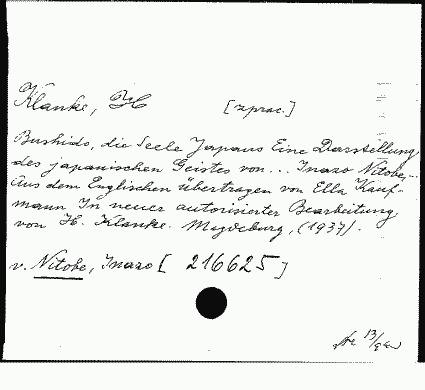 Klanke, H [zprac.]
Bushido, die Seele Japans Eine Darstellung
des japanischen Geistes von... Inazo Nitobe...
Aus dem Englischen übertragen von Ella Kauf-
mann In neuer autorisierter Bearbeitung
von H. Klanke. Magdeburg, (1937).
v. Nitobe, Inazo [ 216625 ]
13/